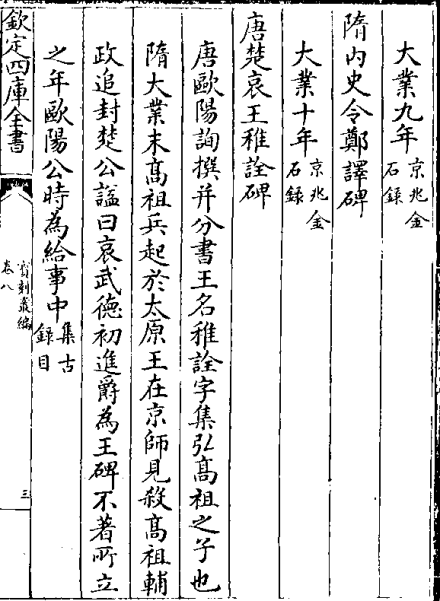 大業九年京兆金石錄
隋內史令鄭譯碑
大業十年京兆金石錄
唐楚哀王稚詮碑
唐歐陽詢撰并分書王名稚詮字集弘高祖之子也
隋大業末高祖兵起於太原王在京師見殺高祖輔
政追封楚公諡曰哀武德初進爵為王碑不著所立
之年歐陽公時為給事中集古錄目
欽定四庫全書
寶刻叢編
卷八
三